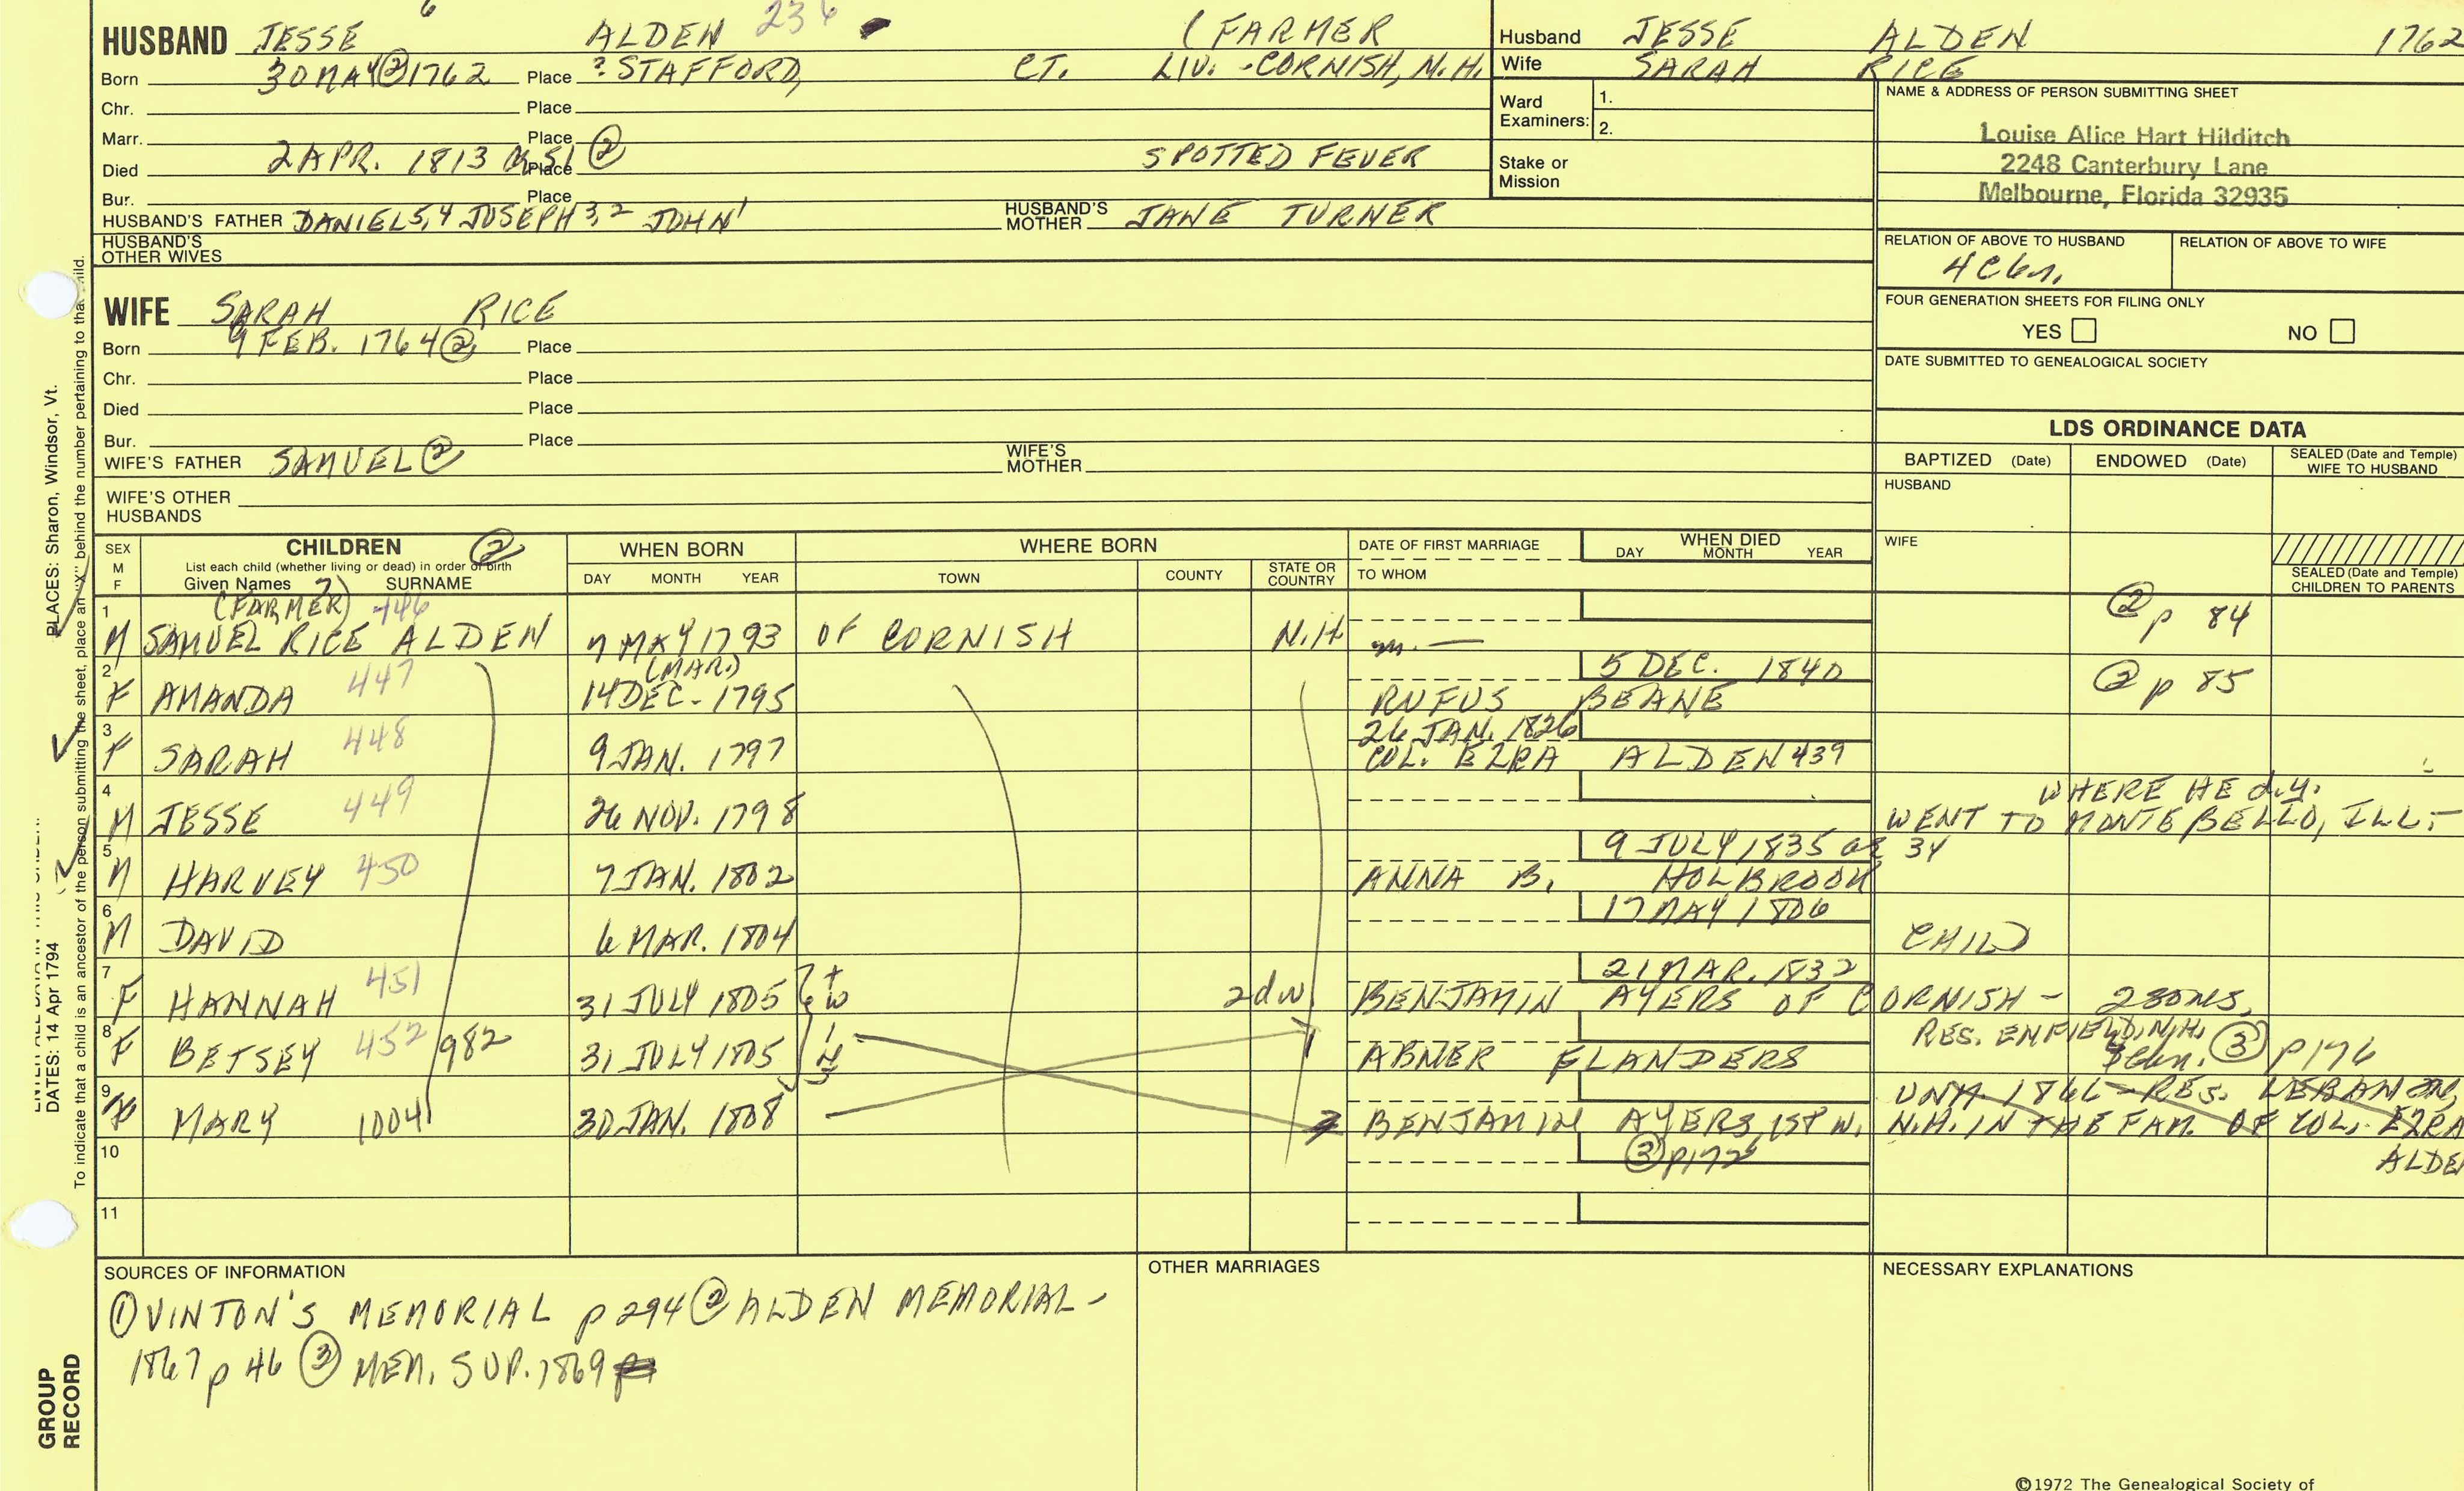 6
HUSBAND JESSE ALDEN 236 (FARMER
Born 30 MAY ② 1762 Place ? STAFFORD, CT. LIV. - CORNISH, N.H.
Chr. Place
Marr. Place
Died 2 APR. 1813 ae 51 ② Place SPOTTED FEVER
Bur. Place
HUSBAND'S FATHER DANIEL 5,4 JOSEPH 3,2 JOHN 1 HUSBAND'S MOTHER JANE TURNER
HUSBAND'S OTHER WIVES
WIFE SARAH RICE
Born 9 FEB. 1764 ② Place
Chr. Place
Died Place
Bur. Place
WIFE'S FATHER SAMUEL ② WIFE'S MOTHER
WIFE'S OTHER HUSBANDS
Husband JESSE ALDEN 1762
Wife SARAH RICE
Ward Examiners: 1. 2.
Stake or Mission
NAME & ADDRESS OF PERSON SUBMITTING SHEET
Louise Alice Hart Hilditch
2248 Canterbury Lane
Melbourne, Florida 32935
RELATION OF ABOVE TO HUSBAND RELATION OF ABOVE TO WIFE
FOUR GENERATION SHEETS FOR FILING ONLY
YES NO
DATE SUBMITTED TO GENEALOGICAL SOCIETY
LDS ORDINANCE DATA
BAPTIZED (Date) ENDOWED (Date) SEALED (Date and Temple) WIFE TO HUSBAND
HUSBAND
WIFE
SEALED (Date and Temple) CHILDREN TO PARENTS
SEX M F
CHILDREN ②
List each child (whether living or dead) in order of birth
Given Names SURNAME
WHEN BORN
DAY MONTH YEAR
WHERE BORN
TOWN COUNTY STATE OR COUNTRY
DATE OF FIRST MARRIAGE
TO WHOM
WHEN DIED
DAY MONTH YEAR
1 (FARMER) 446
M SAMUEL RICE ALDEN 7 MAY 1793 OF CORNISH N.H. m. — ② p 84
2 (MAR.) 5 DEC. 1840
F AMANDA 447 14 DEC - 1795 RUFUS BEANE ② p 85
3 26 JAN. 1826
F SARAH 448 9 JAN. 1797 COL. EZRA ALDEN 439
4 WHERE HE d.y.
M JESSE 449 26 NOV. 1798 WENT TO MONTEBELLO, ILL. -
5 9 JULY 1835 ae 34
M HARVEY 450 7 JAN. 1802 ANNA B. HOLBROOK
6 17 MAY 1806
M DAVID 6 MAR. 1804 CHILD
7 21 MAR. 1832
F HANNAH 451 31 JULY 1805 tw 2d w. BENJAMIN AYERS OF CORNISH - 2 SONS,
8 RES. ENFIELD, N.H.
F BETSEY 452 982 31 JULY 1805 ABNER FLANDERS ③ p 176
9 UNM. 1866 - RES. LEBANON,
MARY 1004 30 JAN. 1808 BENJAMIN AYERS, 1ST W. N.H. IN THE FAM. OF COL. EZRA
ALDE
10 ③
11
SOURCES OF INFORMATION
① VINTON'S MEMORIAL p 294 ② ALDEN MEMORIAL -
1867 p 46 ③ MEM. SUP. 1869
OTHER MARRIAGES
NECESSARY EXPLANATIONS
©1972 The Genealogical Society of
PLACES: Sharon, Windsor, Vt.
To indicate that a child is an ancestor of the person submitting the sheet, place an "X" behind the number pertaining to that child.
DATES: 14 Apr 1794
GROUP RECORD